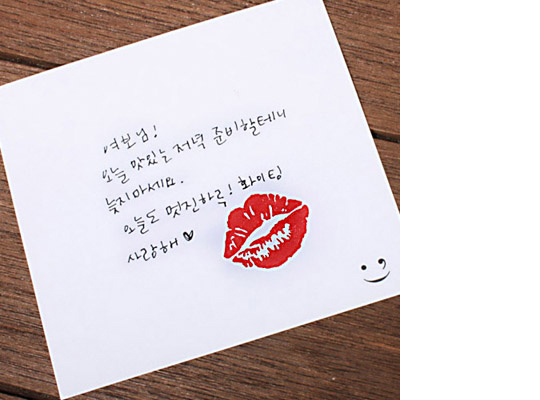 여보님!
오늘 맛있는 저녁 준비할테니
늦지마세요.
오늘도 멋진하루! 화이팅
사랑해♥